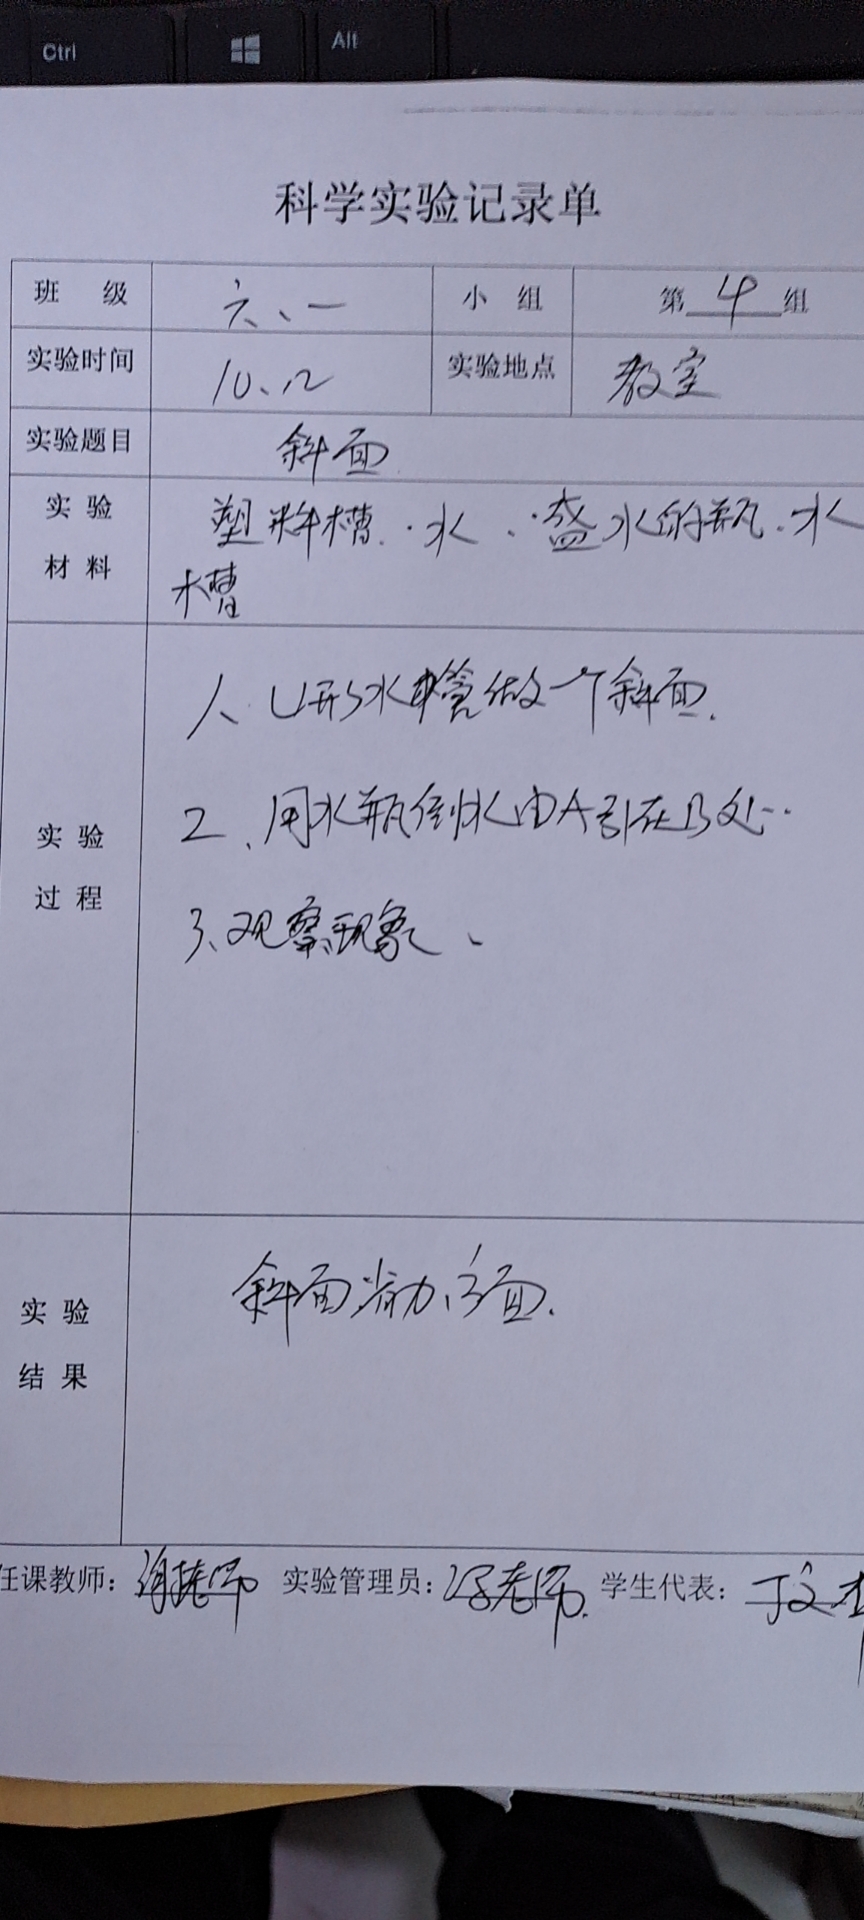 Ctrl
Alt
科学实验记录单
班 级 六、一 小 组 第 4 组
实验时间 10、12 实验地点 教室
实验题目 斜面
实 验 塑料槽、水、盛水的瓶、水
材 料 槽
1、U形水槽做一个斜面.
2、用水瓶倒水由A引在B处
实 验
过 程
3、观察现象、
斜面省力 面.
实 验
结 果
任课教师: 老师 实验管理员: 冯老师. 学生代表: 丁文